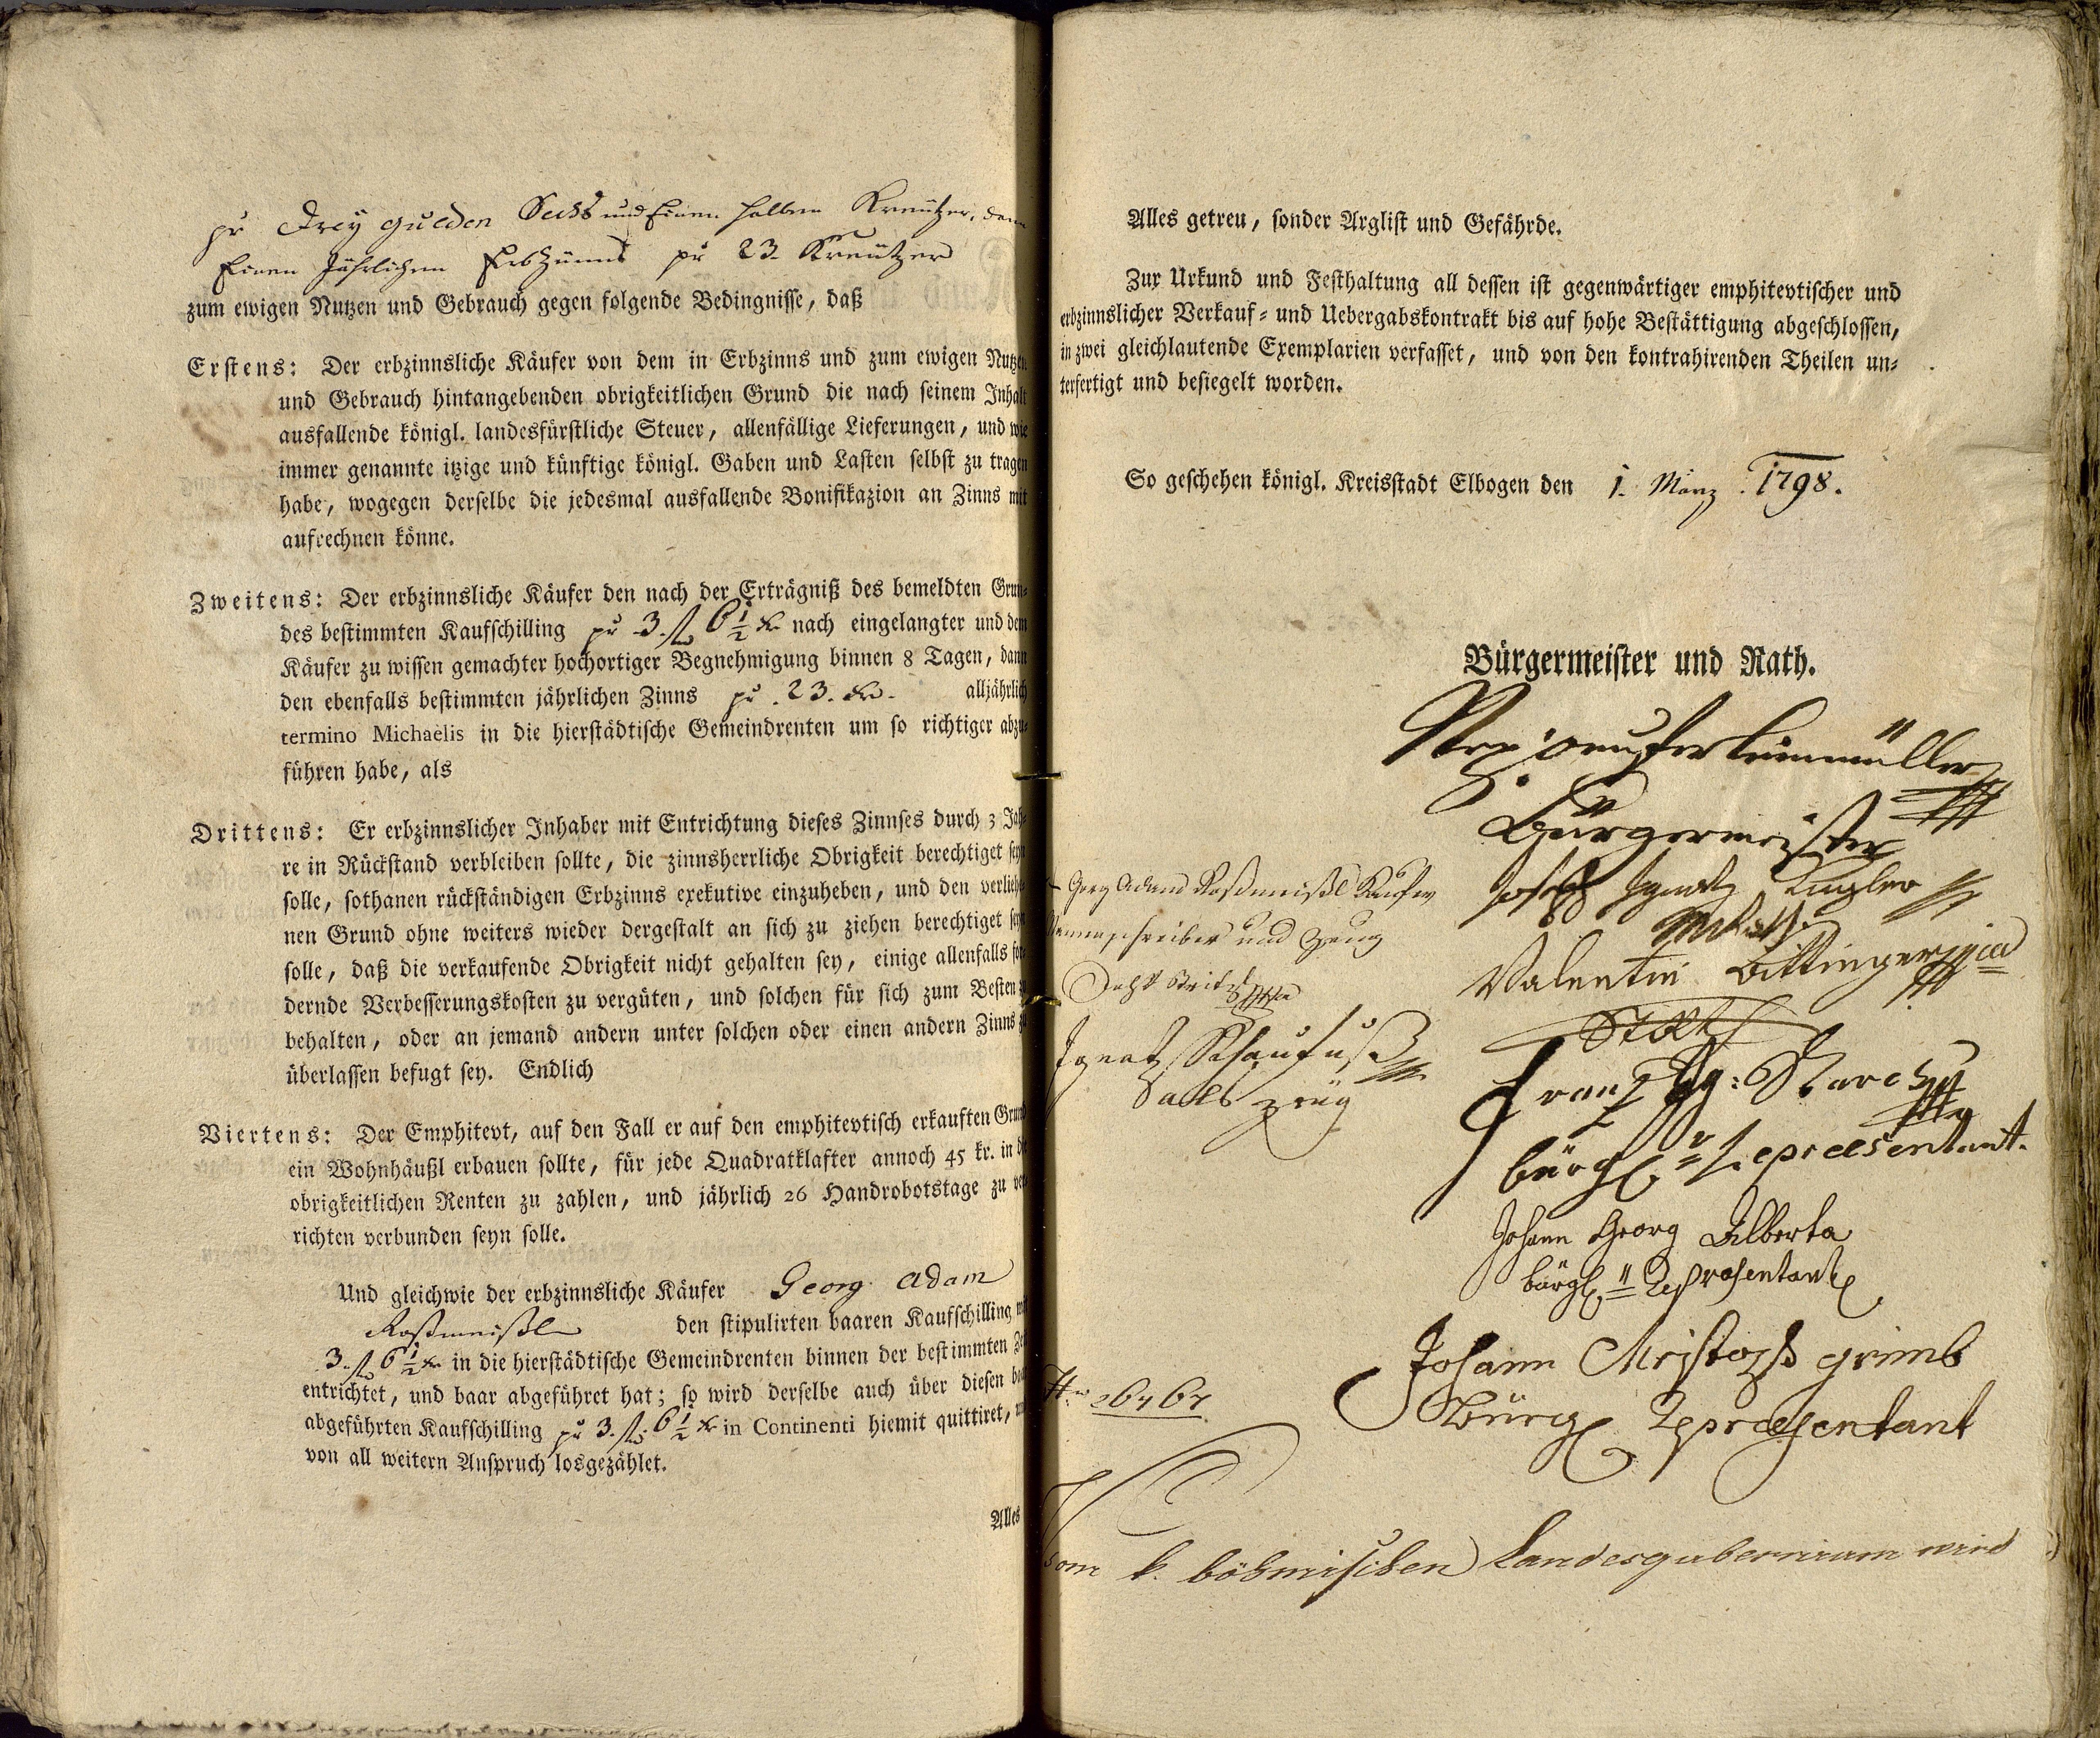 pr Drey gulden Sechs und Einen halben Kreutzer, dann
Einen Jährlichen Erbzinns pr 23. Kreutzer
zum ewigen Nutzen und Gebrauch gegen folgende Bedingnisse, daß
Erstens: Der erbzinnsliche Käufer von dem in Erbzinns und zum ewigen Nutzen
und Gebrauch hintangebenden obrigkeitlichen Grund die nach seinem Inhalt
ausfallende königl. landesfürstliche Steuer, allenfällige Lieferungen, und wie
immer genannte itzige und künftige königl. Gaben und Lasten selbst zu tragen
habe, wogegen derselbe die jedesmal ausfallende Bonifikazion an Zinns mit
aufrechnen könne.
Zweitens: Der erbzinnsliche Käufer den nach der Erträgniß des bemeldten Grun-
des bestimmten Kaufschilling pr 3. fl 6 1/2 kr nach eingelangter und dem
Käufer zu wissen gemachter hochortiger Begnehmigung binnen 8 Tagen, dann
den ebenfalls bestimmten jährlichen Zinns pr. 23. kr. alljährlich
termino Michaelis in die hierstädtische Gemeindrenten um so richtiger abzu-
führen habe, als
Drittens: Er erbzinnslicher Inhaber mit Entrichtung dieses Zinnses durch 3 Jah-
re in Rückstand verbleiben sollte, die zinnsherrliche Obrigkeit berechtiget seyn
solle, sothanen rückständigen Erbzinns exekutive einzuheben, und den verliehe-
nen Grund ohne weiters wieder dergestalt an sich zu ziehen berechtiget seyn
solle, daß die verkaufende Obrigkeit nicht gehalten sey, einige allenfalls for-
dernde Verbesserungskosten zu vergüten, und solchen für sich zum Besten zu
behalten, oder an jemand andern unter solchen oder einen andern Zinns zu
überlassen befugt sey. Endlich
Viertens: Der Emphitevt, auf den Fall er auf den emphitevtisch erkauften Grund
ein Wohnhäußl erbauen sollte, für jede Quadratklafter annoch 45 kr. in die
obrigkeitlichen Renten zu zahlen, und jährlich 26 Handrobotstage zu ver-
richten verbunden seyn solle.
Und gleichwie der erbzinnsliche Käufer Georg Adam
Roßmeißl den stipulirten baaren Kaufschilling
3. fl 6 1/2 kr in die hierstädtische Gemeindrenten binnen der bestimmten Zeit
entrichtet, und baar abgeführet hat; so wird derselbe auch über diesen baar
abgeführten Kaufschilling pr 3. fl. 6 1/2 kr in Continenti hiemit quittiret, und
von all weitern Anspruch losgezählet.
Alles
Alles getreu, sonder Arglist und Gefährde.
Zur Urkund und Festhaltung all dessen ist gegenwärtiger emphitevtischer und
erbzinnslicher Verkauf- und Uebergabskontrakt bis auf hohe Bestättigung abgeschlossen,
in zwei gleichlautende Exemplarien verfasset, und von den kontrahirenden Theilen un-
terfertigt und besiegelt worden.
So geschehen königl. Kreisstadt Elbogen den 1. März 1798.
Bürgermeister und Rath.
Bürgermeister
Georg Adam Roßmeißl Käufer
Joseph Ignatz Kugler
schreiber und Zeug
Valentin Bittinger
Ignatz Schaufuß
als Zeug
Franz
bürgl. Repraesentant.
Johann Georg Alberta
bürgl. Repräsentant
Johann Christoph grimb
Bürgl Repraesentant
26464
Vom k. böhmischen Landesgubernium wird